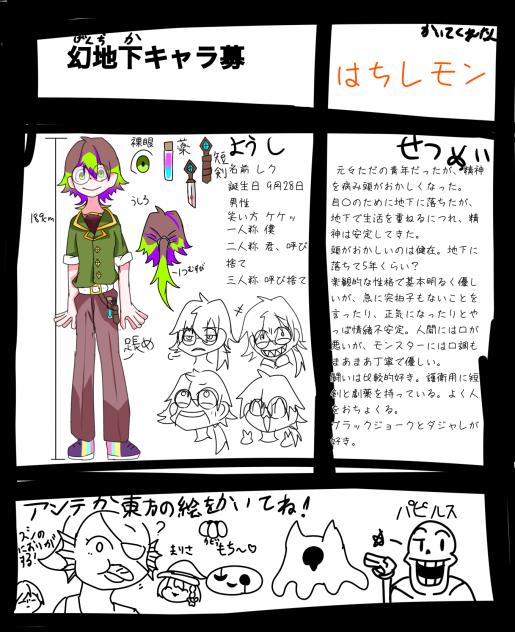 幻地下キャラ募
かいてくれた人
はちしモン
ようし
裸眼
薬
短剣
うしろ
189cm
足長め
名前 レク
誕生日 9月28日
男性
笑い方 ケケッ
一人称 僕
二人称 君、呼び
捨て
三人称 呼び捨て
せつめい
元々ただの青年だったが、精神
を病み頭がおかしくなった。
自〇のために地下に落ちたが、
地下で生活を重ねるにつれ、精
神は安定してきた。
頭がおかしいのは健在。地下に
落ちて5年くらい?
楽観的な性格で基本明るく優し
いが、急に突拍子もないこと
を言ったり、正気になったりとや
っぱ情緒不安定。人間には口が
悪いが、モンスターには口調も
まあまあ丁寧で優しい。
闘いは比較的好き。護衛用に短
剣と劇薬を持っている。よく人
をおちょくる。
ブラックジョークとダジャレが
好き。
アンテか東方の絵をかいてね!
?
まりさ
もち〜♡
パピルス